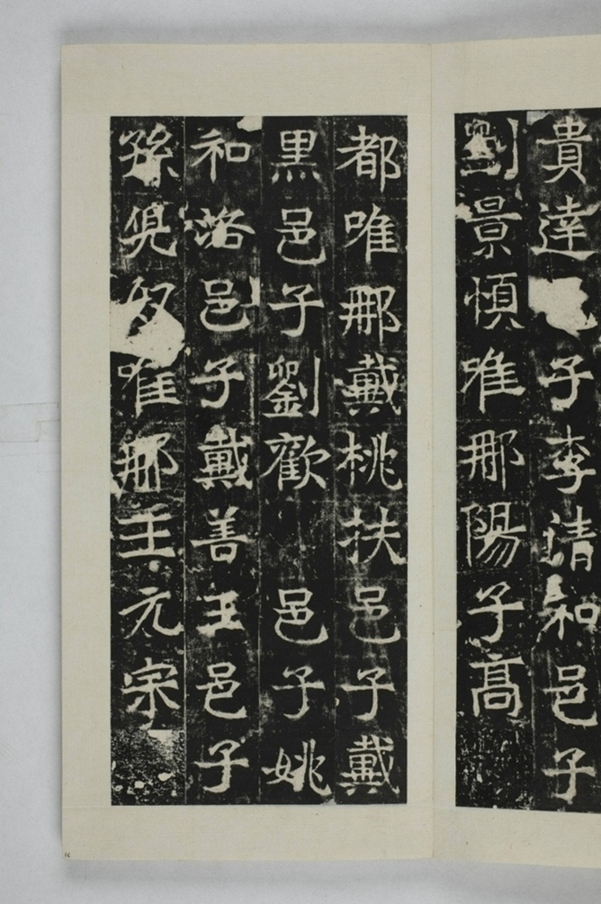 貴達子李清和邑子
劉景唯那陽子高
都唯那戴桃扶邑子戴
黒邑子劉歡 邑子姚
和洛邑子戴善王邑子
孫唯那王元宗